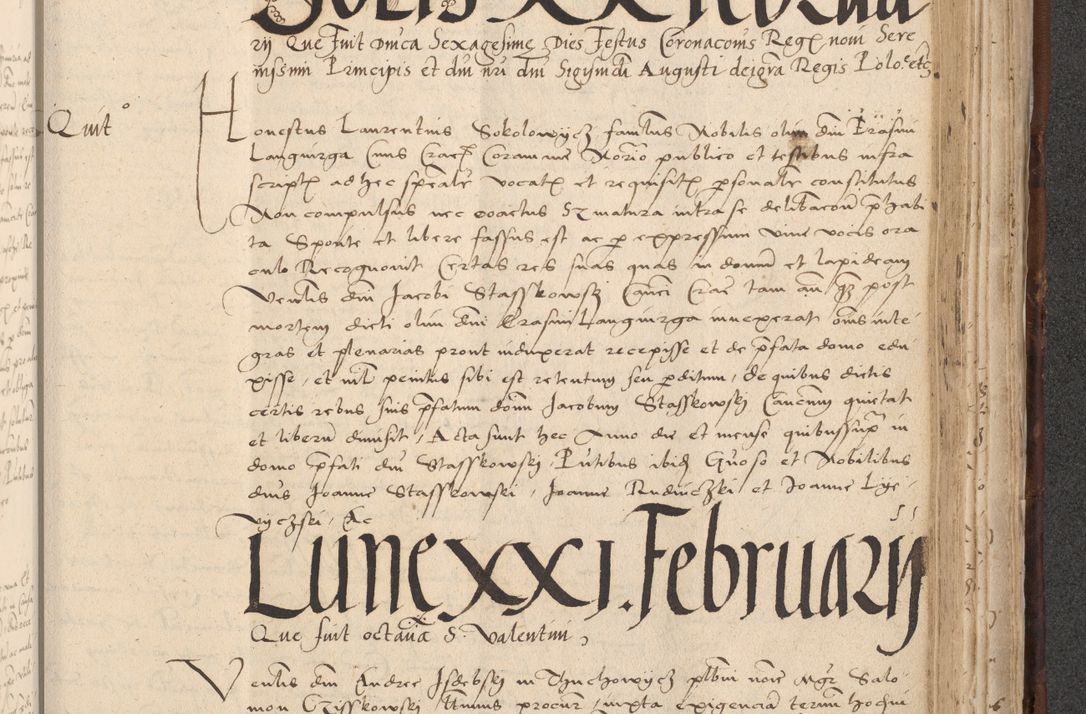 Solis XX Februa
rij Que fuit Dnica Sexagesime Dies festus Coronacois Reg noui Sere
nissimi Principis et dni nri dni Sigismdi Augusti dei gra Regis Polo etc
Quit
Honestus Laurentius Sokolowycz famlus Nobilis olim dni Erasmi
Langurga Ciuis Crac Coram me Notario publico et testibus infra
script ad hec spealr vocat et requisit psonalr constitutus
Non compulsus nec coactus Sz matura intra se delibacon phabi
ta Sponte et libere fassus est ac p expressum viue vocis ora
culo Recognouit Certas res suas quas in domu et lapideam
Venlis dni Jacobi Stasskowski Canci Crac tam an qz post
mortem dicti olim dni Erasmi Langurga inuexerat oms inte
gras et plenarias prout induxerat recepisse et de pfata domo edu
xisse, et nil penitus sibi est retentum seu pditum, de quibus dictis
certis rebus suis pfatum domn Jacobum Stasskowski Canonm quietat
et liberu dimisit, Acta sunt hec Anno die et mense quibussup in
domo pfati dni Stasskowski, Pntibus ibid Gnoso et Nobilibus
dnis Joanne Stasskowski, Joanne Rudniczki et Joanne Lye
vyczski, Ac
Lune XXI. Februarij
Que fuit octaua S. Valentini
Venlis dni Andree Isdebski in Thuchowycz plbni noie Mgr Salo
mon Gzisskowski ltimus procur iuxta exigencia termi hodui